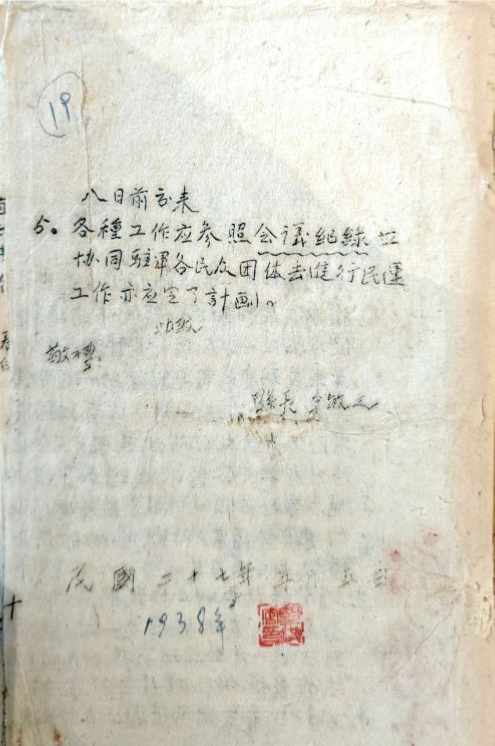 19
八日前方来
5. 各種工作应参照会議紀錄並
协同駐軍各民众团体去進行民運
工作亦应定了計劃。
此致
敬禮
縣長 李
民國二十七年 五日
1938年